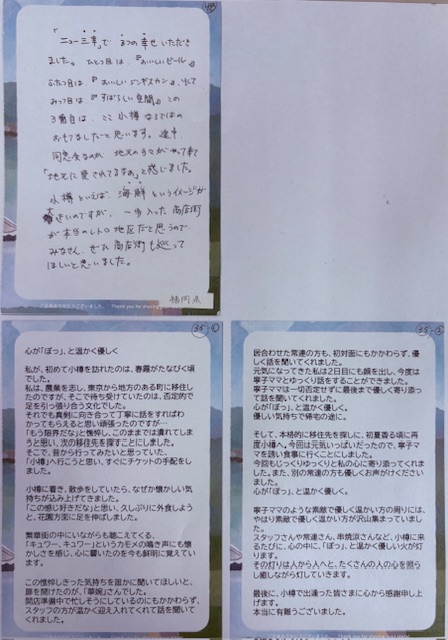 「ニュー三幸」で 3つの幸せ いただき
ました。 ひとつ目は、『おいしいビール』
ふたつ目は、『おいしいジンギスカン』、そして
みっつ目は、『すばらしい空間』 この
3番目は、ここ 小樽ならではの
おもてなしだと思います。途中
同窓会なのか 地元の方々がやって来て
「地元に愛されてるなぁ」と感じました。
小樽といえば、海鮮 というイメージが
強いのですが、一歩入った 商店街
が本当のレトロ地区だと思うので
みなさん ぜひ 商店街も巡って
ほしいと思いました。
福岡県
35-①
心が「ぽっ」、と温かく優しく
私が、初めて小樽を訪れたのは、春霞がたなびく頃
でした。
私は、農業を志し、東京から地方のある町に移住し
たのですが、そこで待ち受けていたのは、否定的で
足を引っ張り合う文化でした。
それでも真剣に向き合って丁寧に話をすればわ
かってもらえると思い頑張ったのですが…
「もう限界だな」と憔悴し、このままでは潰れてしま
うと思い、次の移住先を探すことにしました。
そこで、昔から行ってみたいと思っていた、
「小樽」へ行こうと思い、すぐにチケットの手配をし
ました。
小樽に着き、散歩をしていたら、なぜか懐かしい気
持ちが込み上げてきました。
「この感じ好きだな」と思い、久しぶりに外食しよう
と、花園方面に足を伸ばしました。
繁華街の中にいながらも聴こえてくる、
「キュワー、キュワー」というカモメの鳴き声にも懐
かしさを感じ、心に響いたのを今も鮮明に覚えてい
ます。
この憔悴しきった気持ちを誰かに聞いてほしいと、
扉を開けたのが、「華婉」さんでした。
開店準備中で忙しそうにしているのにもかかわらず、
スタッフの方が温かく迎え入れてくれて話を聞いて
くれました。
35-②
居合わせた常連の方も、初対面にもかかわらず、優
しく話を聞いてくれました。
元気になってきた私は2日目にも顔を出し、今度は
寧子ママとゆっくり話をすることができました。
寧子ママは一切否定せずに最後まで優しく寄り添っ
て話を聞いてくれました。
心が「ぽっ」、と温かく優しく。
優しい気持ちで帰宅の途に。
そして、本格的に移住先を探しに、初夏香る頃に再
度小樽へ。今回は元気いっぱいだったので、寧子マ
マを誘い食事に行くことにしました。
今回もじっくりゆっくりと私の心に寄り添ってくれま
した。また、別の常連の方も優しくお声がけください
ました。
心が「ぽっ」、と温かく優しく。
寧子ママのような素敵で優しく温かい方の周りには、
やはり素敵で優しく温かい方が沢山集まっていまし
た。
スタッフさんや常連さん、串焼涼さんなど、小樽に来
るたびに、心の中に、「ぽっ」、と温かく優しい火が灯
ります。
その灯りは人から人へと、たくさんの人の心を照ら
し癒しながら灯していきます。
最後に、小樽で出逢った皆さまに心から感謝申し上
げます。
本当に有難うございました。